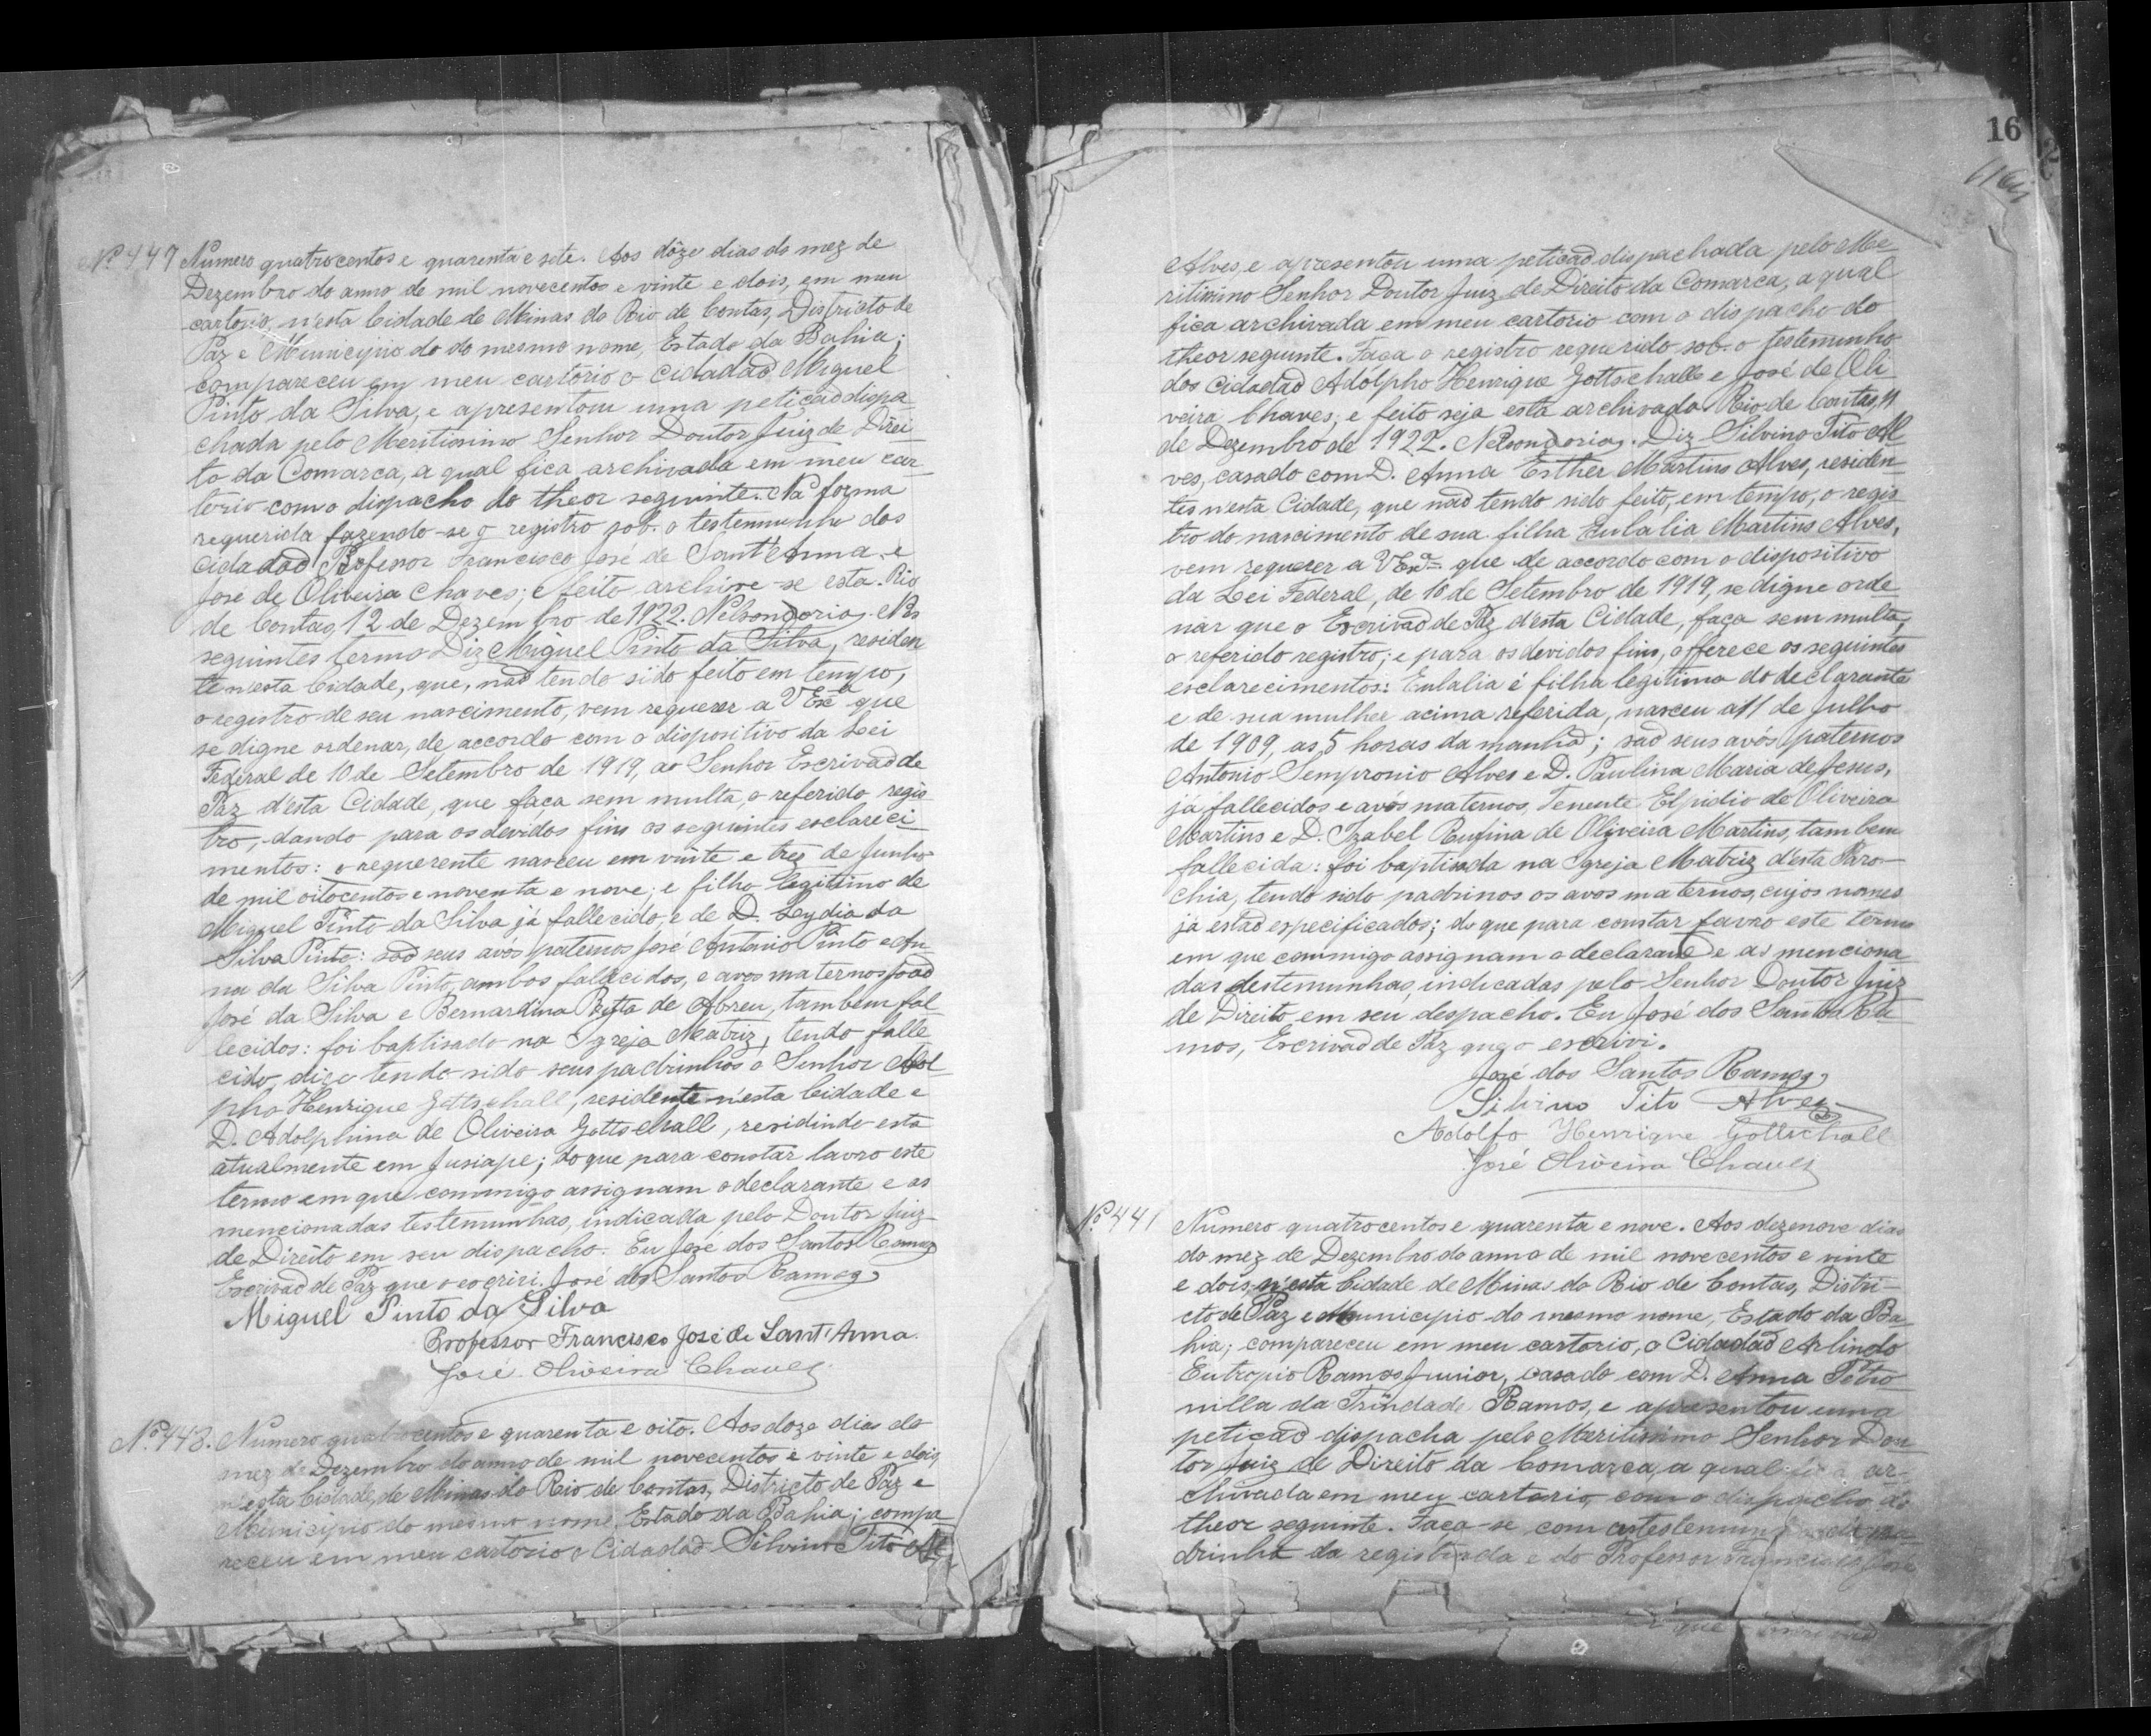 Nº 447 Numero quatrocentos e quarenta e sete. Aos dôze dias do mez de
Dezembro do anno de mil novecentos e vinte e dois, em meu
cartorio, n'esta Cidade de Minas do Rio de Contas, Districto de
Paz e Municipio do do mesmo nome, Estado da Bahia;
compareceu em meu cartorio o Cidadão Miguel
Pinto da Silva, e apresentou uma petição dispa
chada pelo Meritissimo Senhor Doutor Juiz de Direi
to da Comarca, a qual fica archivada em meu car
torio com o dispacho do theor seguinte. Na forma
requerida fazendo-se o registro sob. o testemunho dos
Cidadão Professor Francisco José de Sant'Anna e
José de Oliveira Chaves; e feito archive-se esta. Rio
de Contas, 12 de Dezembro de 1922. Nelson Doria.
seguintes termo Diz Miguel Pinto da Silva, residen
te n'esta Cidade, que, não tendo sido feito em tempo,
o registro de seu nascimento, vem requerer a V Excª que
se digne ordenar, de accordo com o dispositivo da Lei
Federal de 10 de Setembro de 1919, ao Senhor Escrivão de
Paz d'esta Cidade, que faça sem multa, o referido regis
tro, dando para os devidos fins os seguintes esclareci
mentos: o requerente nasceu em vinte e trez de Junho
de mil oitocentos e noventa e nove; e filho legitimo de
Miguel Pinto da Silva já fallecido, e de D. Leydia da
Silva Pinto: são seus avós paternos José Antonio Pinto e An
na da Silva Pinto, ambos fallecidos, e avos maternos João
José da Silva e Bernardina de Abreu, tambem fal
lecidos: foi baptisado na Igreja Matriz, tendo falle
cido, digo tendo sido seus padrinhos o Senhor Adol
pho Henrique Gottschall, residente n'esta Cidade e
D. Adolphina de Oliveira Gottschall, residindo esta
atualmente em Jusiape; do que para constar lavro este
termo em que commigo assignam o declarante e as
mencionadas testemunhas, indicada pelo Doutor Juiz
de Direito em seu dispacho. Eu José dos Santos Ramos
Escrivão de Paz que o escrivi. José dos Santos Ramos
Miguel Pinto da Silva
Professor Francisco José de Sant'Anna.
José Oliveira Chaves
Nº 448. Numero quatrocentos e quarenta e oito. Aos doze dias do
mez de Dezembro do anno de mil novecentos e vinte e dois,
n'esta Cidade, de Minas do Rio de Contas, Districto de Paz e
Municipio do mesmo nome, Estado da Bahia; compa
receu em meu cartorio o Cidadão Silvino Tito Al
16
Alves, e apresentou uma petição dispachada pelo Me
ritissimo Senhor Doutor Juiz de Direito da Comarca, a qual
fica archivada em meu cartorio com o dispacho do
theor seguinte. Faça o registro requerido sob. o testemunho
dos Cidadão Adólpho Henrique Gottschall e José de Oli
veira Chaves, e feito seja esta archivada. Rio de Contas, 11
de Dezembro de 1922. Nelson Doria. Diz Silvino Tito Al
ves, casado com D. Anna Esther Martins Alves, residen
tes n'esta Cidade, que não tendo sido feito, em tempo, o regis
tro do nascimento de sua filha Eulalia Martins Alves,
vem requerer a V Excª que de accordo com o dispositivo
da Lei Federal, de 10 de Setembro de 1919, se digne orde
nar que o Escrivão de Paz d'esta Cidade, faça sem multa,
o referido registro; e para os devidos fins, offerece os seguintes
esclarecimentos: Eulalia é filha legitima do declarante
e de sua mulher acima referida, nasceu a 11 de Julho
de 1909, as 5 horas da manhã; são seus avós paternos
Antonio Sempronio Alves e D. Paulina Maria de Jesus,
já fallecidos e avós maternos, Tenente Elpidio de Oliveira
Martins e D. Izabel Rufina de Oliveira Martins, tambem
fallecida: foi baptisada na Igreja Matriz d'esta Paro-
chia, tendo sido padrinos os avos maternos, cujos nomes
já estão especificados; do que para constar lavro este termo
em que commigo assignam o declarante e as menciona
das destemunhas, indicadas pelo Senhor Doutor Juiz
de Direito em seu despacho. Eu José dos Santos Ra
mos, Escrivão de Paz que o escrivi.
José dos Santos Ramos
Silvino Tito Alves
Adolfo Henrique Gottschall
José Oliveira Chaves
Nº 441 Numero quatrocentos e quarenta e nove. Aos dezenove dias
do mez de Dezembro do anno de mil novecentos e vinte
e dois, n'esta Cidade de Minas do Rio de Contas, Distri-
cto de Paz e Municipio do mesmo nome, Estado da Ba
hia; compareceu em meu cartorio, o Cidadão Arlindo
Eutropio Ramos Junior, casado com D. Anna Petro
nilla da Trindade Ramos, e apresentou uma
petição dispacha pelo Meritissimo Senhor Dou
tor Juiz de Direito da Comarca, a qual fica ar-
chivada em meu cartorio com o dispacho do
theor seguinte. Faça-se com
drinha da registrada e do Professor Francisco José